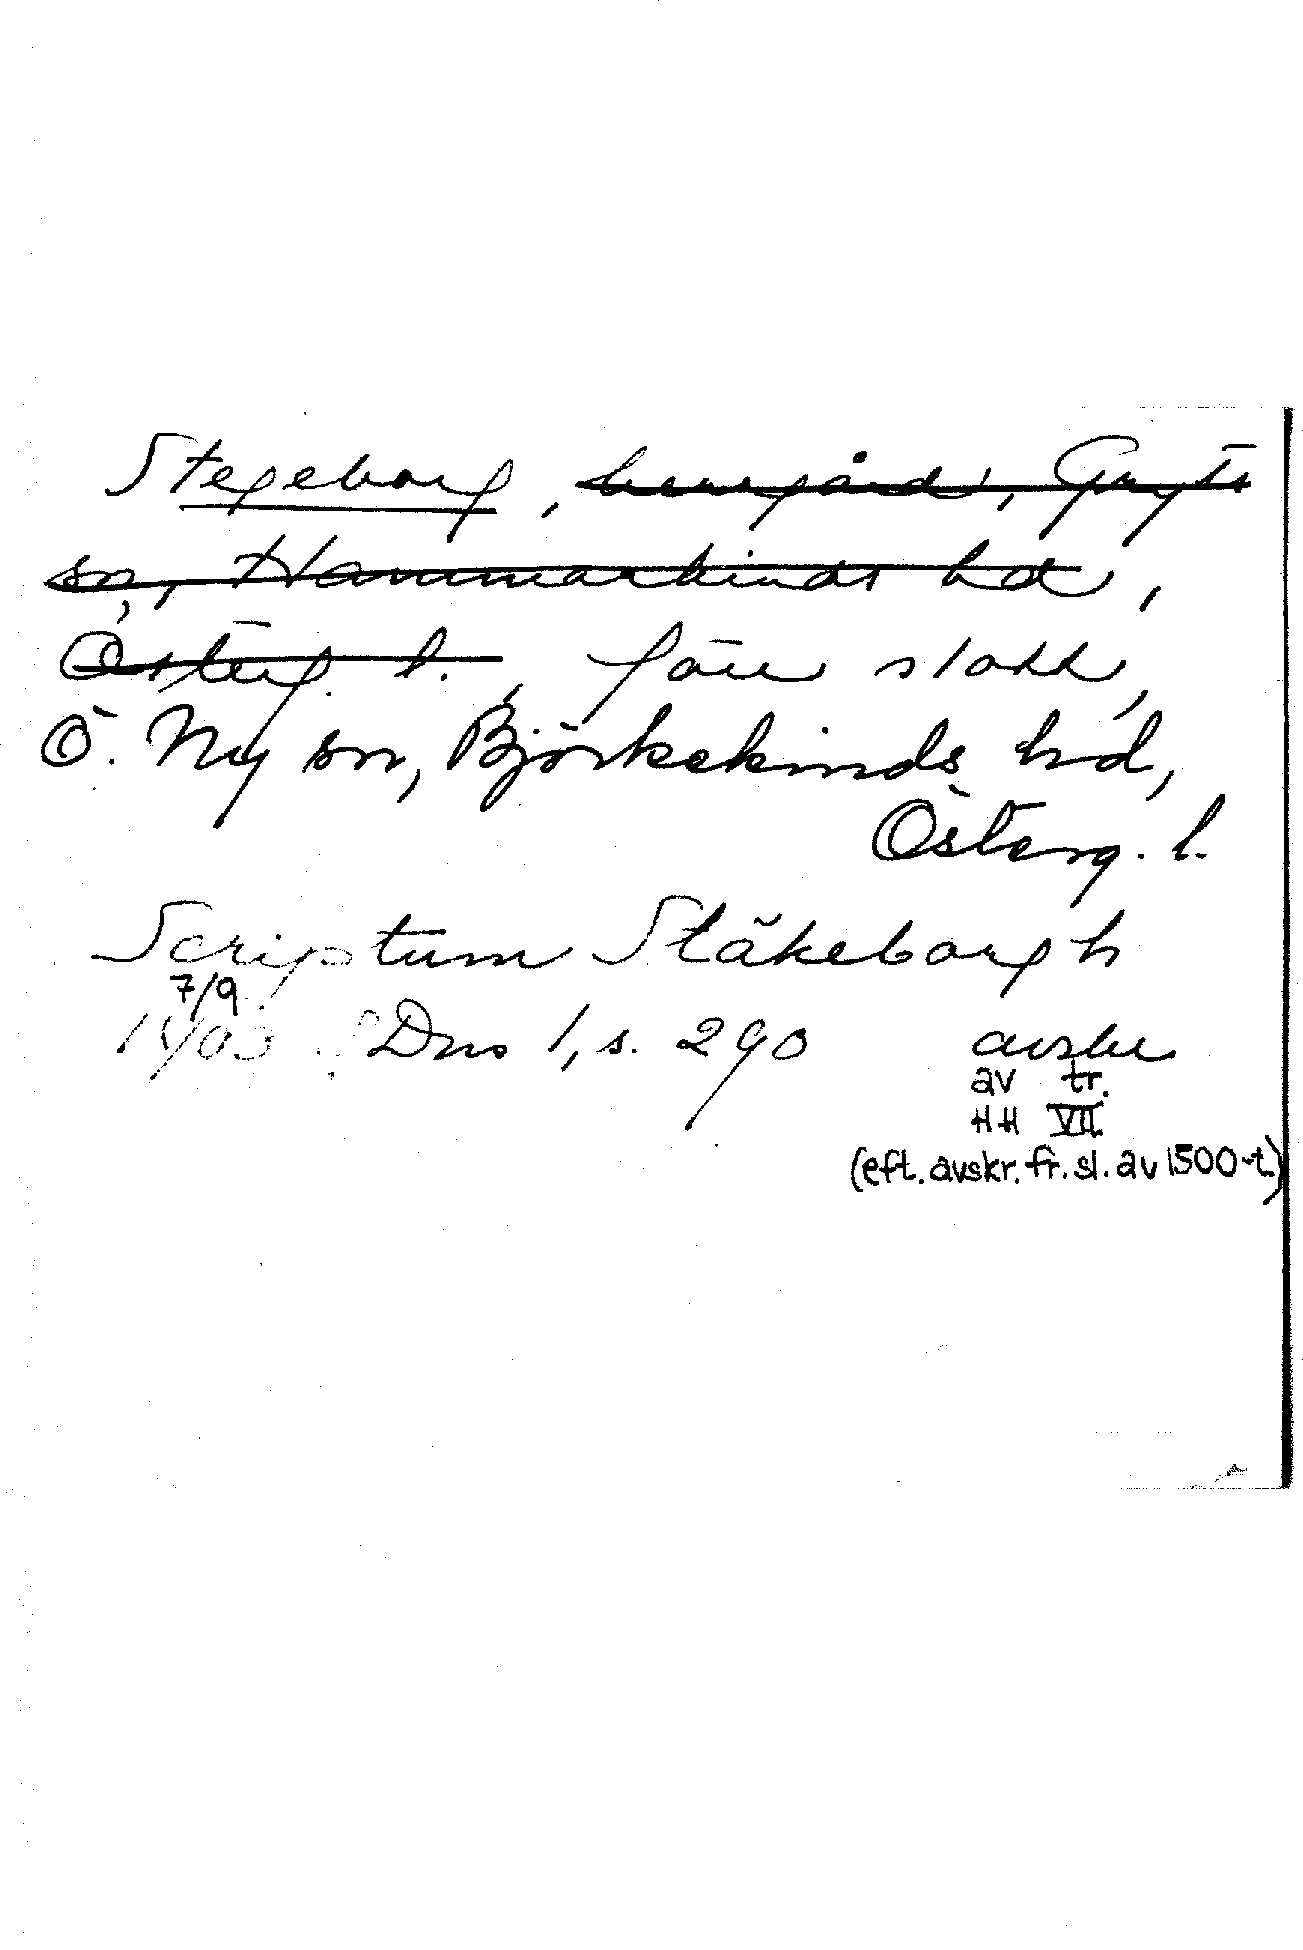 Stegeborg, herrgård, Gryts
sn, Hammarkinds hd,
Österg. l., förr slott,
Ö. Ny sn, Björkekinds hd,
Österg. l.
Scriptum Stäkeborgh
7/9
1403 Dns 1, s. 290 avskr
av tr.
HH VII
(eft. avskr. fr. sl. av 1500-t.)